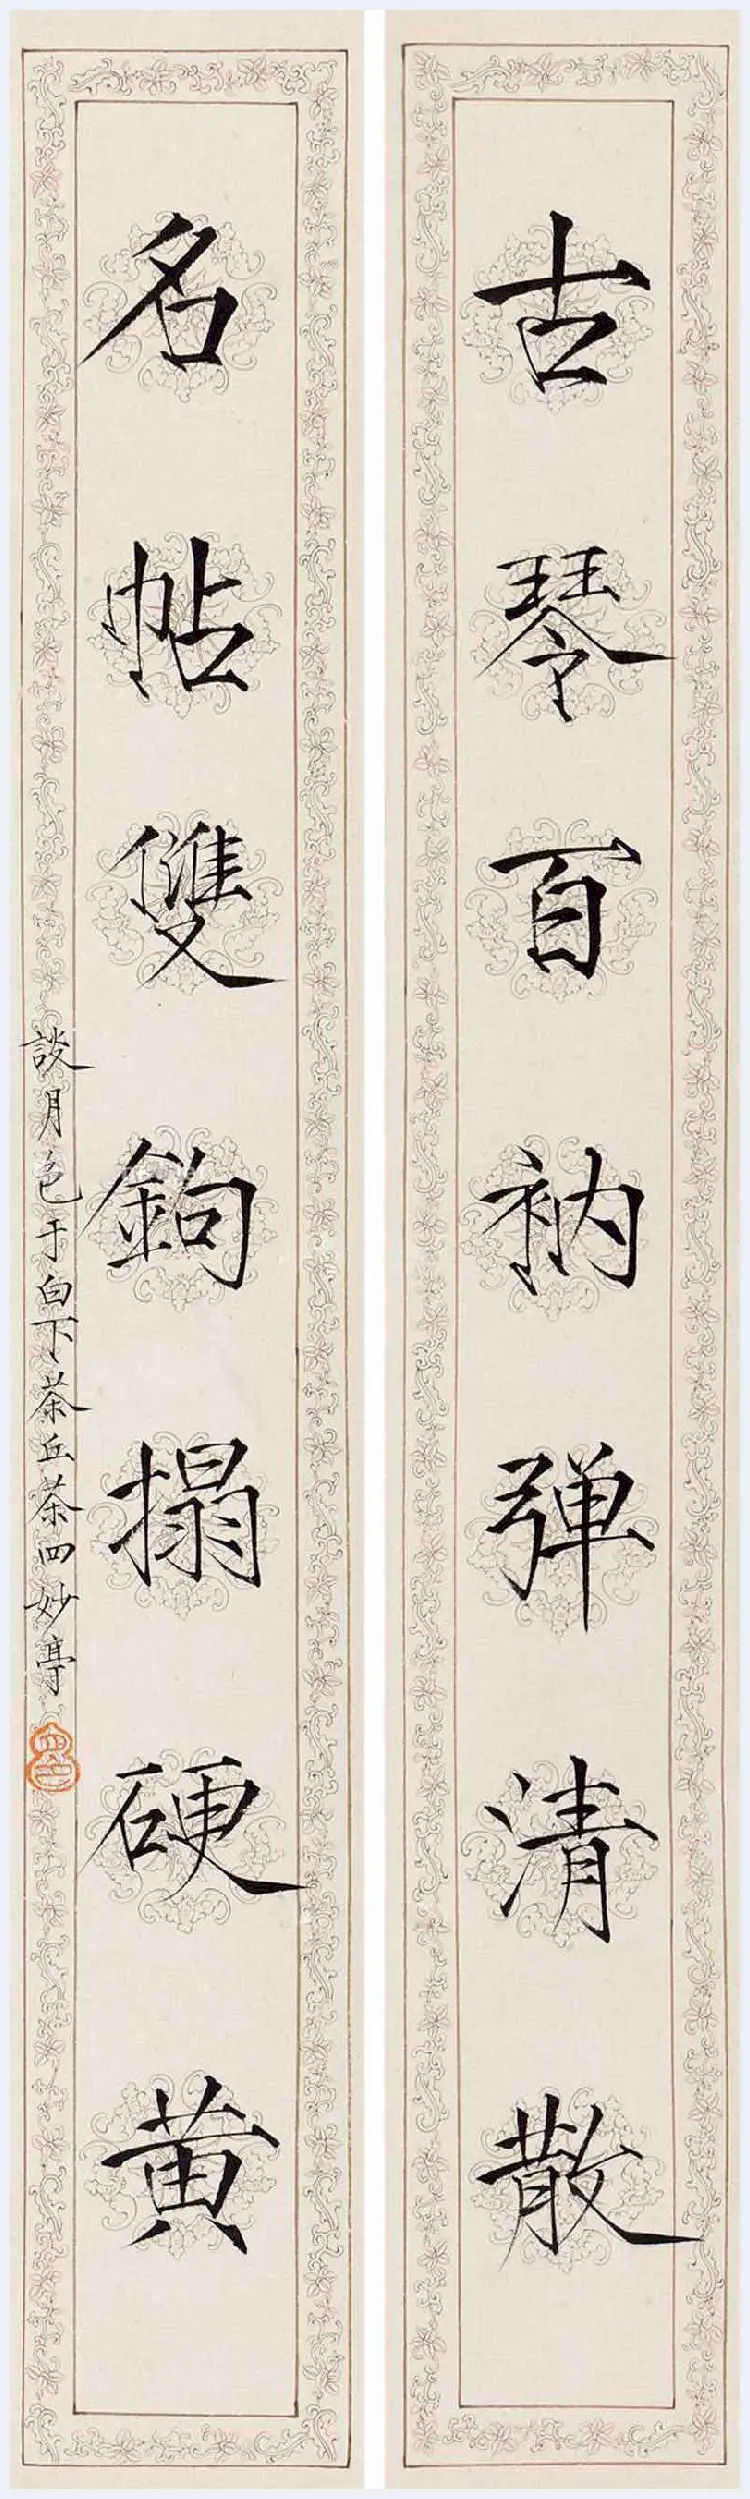 古琴百衲弹清散
名帖雙鉤搨硬黄
談月色于白下茶丘茶四妙亭